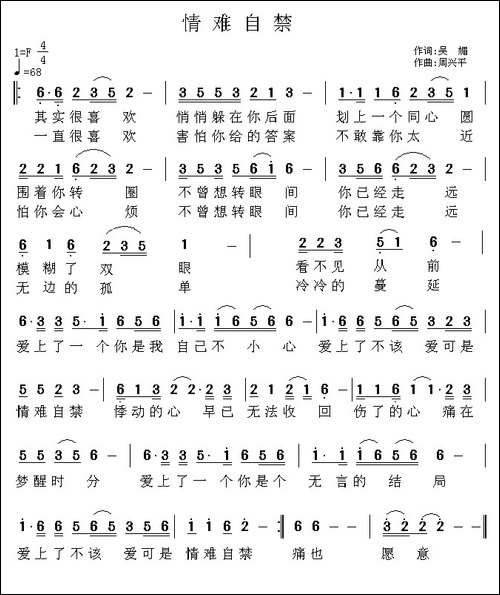 情难自禁
1=F 4/4
♩=68
作词:吴 媚
作曲:周兴平
6·6 2 3 5 2 - | 3 5 5 3 2 1 2 - | 1·1 1 6 1 2 3 -
其实很喜欢 悄悄躲在你后面 划上一个同心圆
一直很喜欢 害怕你给的答案 不敢靠你太近
2 2 1 6 2 3 2 - | 3 5 5 3 5 6 i 6 - | 2 2 1 6 2 3 2 -
围着你转圈 不曾想转眼间 你已经走远
怕你会心烦 不曾想转眼间 你已经走远
6 1 6 2 3 5 1 - | 2 2 3 5 1 6 -
模糊了双眼 看不见从前
无边的孤单 冷冷的蔓延
6·3 3 5·i 6 5 6 | i·i i 6 5 6 | i·6 6 5 6 5 3 2 3
爱上了一个你是我 自己不小心 爱上了不该爱可是
5 5 2 3 - | 6 1 3 2 2·2 3 | 1 2 1 6 2 - | 1·1 6 1 2 2 3
情难自禁 悸动的心早已 无法收回 伤了的心痛在
5 5 3 5 6 - | 6·3 3 5·i i 6 5 6 i | i 6 5 6 6 -
梦醒时分 爱上了一个你是个 无言的结局
i·6 6 5 6 5 3 5 6 | i i 6 2 - :| 6 6 - - | 3 2 2 2 -
爱上了不该爱可是情难自禁 痛也愿意